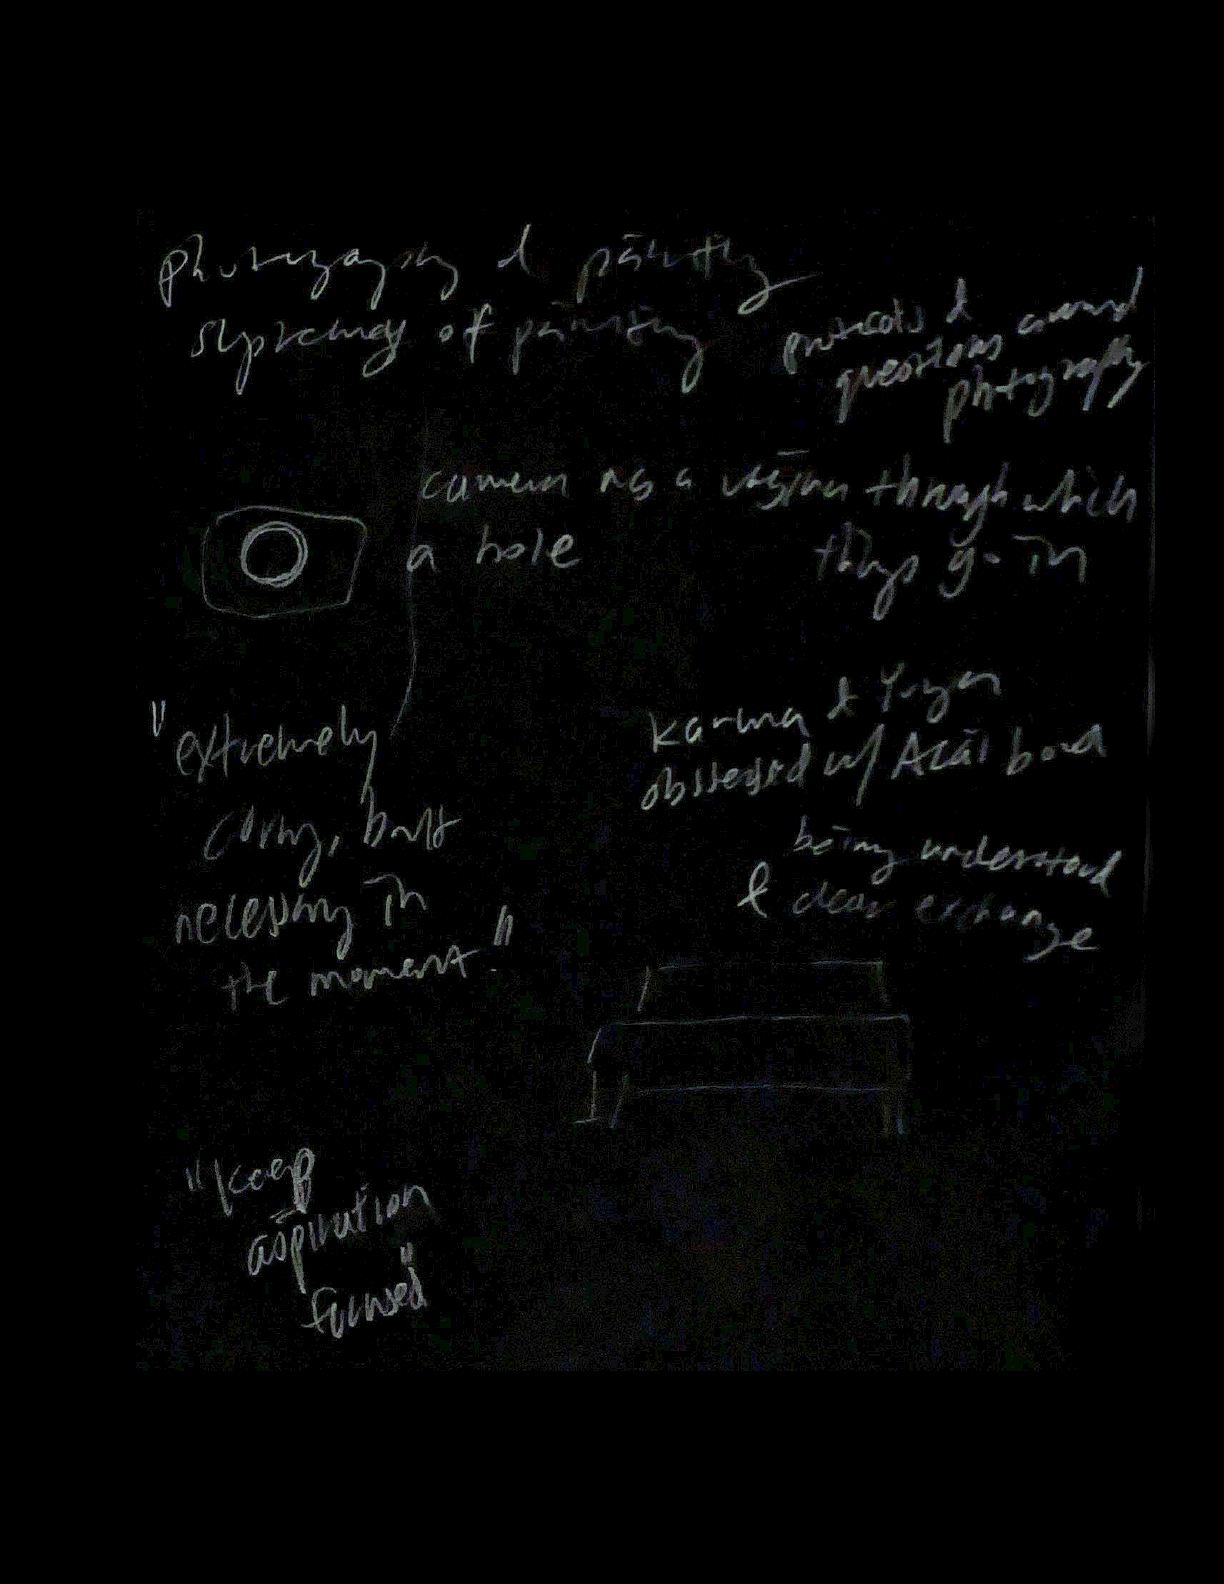 photography & painting
supremacy of painting
protocols &
questions around
photography
camera as a vagina through which
a hole
things go in
"extremely
corny, but
necessary in
the moment."
Karma &
obsessed w/ Acai bowl
being understood
& clear exchange
"keep
aspiration
focused"